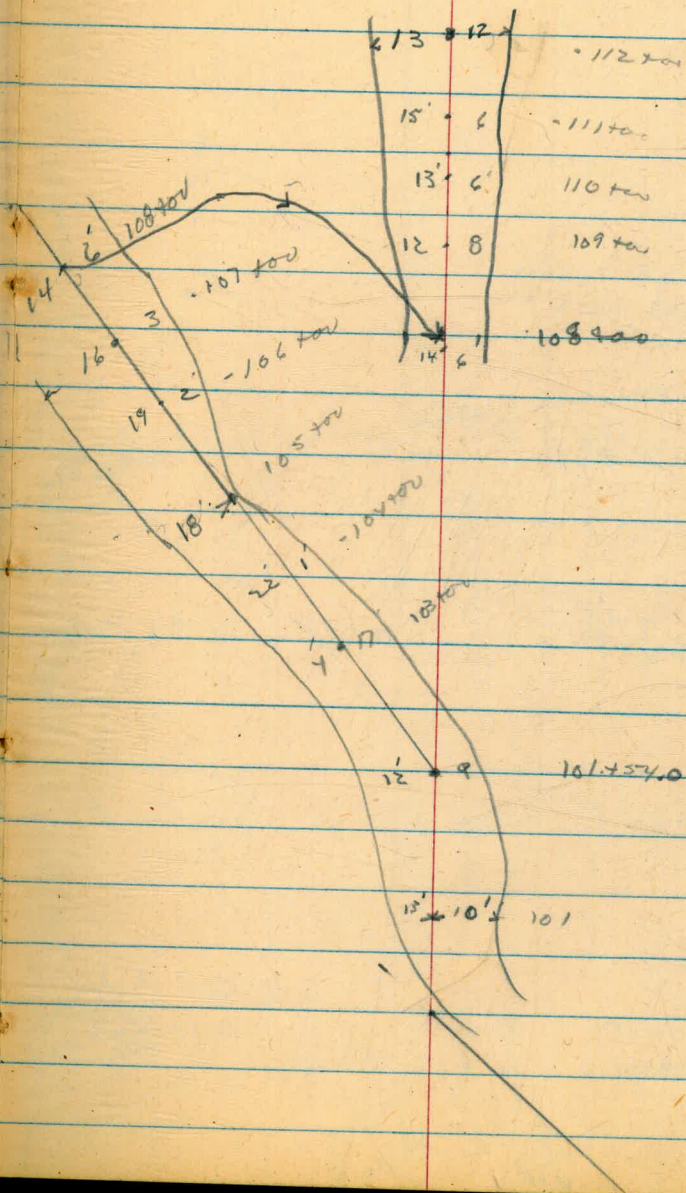 13 12 112+00
15' 6 111+00
13' 6' 110+00
12 8 109+00
14' 6' 108+00
14 6' 108+00
16 3 107+00
19 2' 106+00
18' 105+00
22' 1' 104+00
17 103+00
12' 9 101+54.0
13' 10' 101